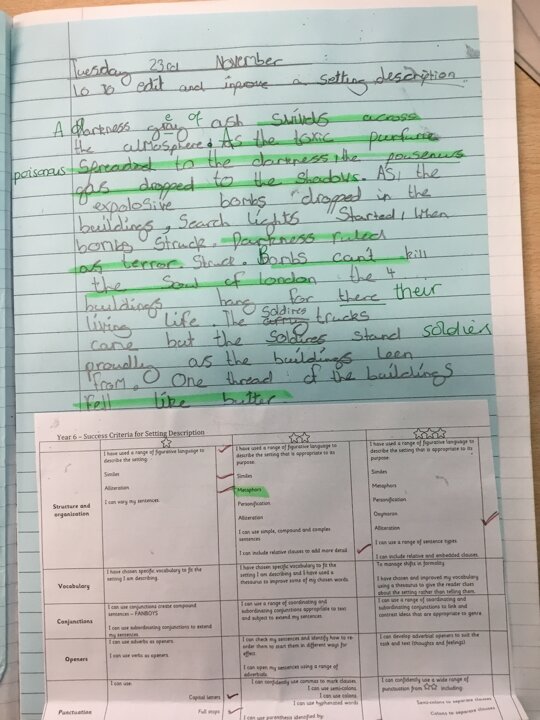 Tuesday 23rd November
To to edit and inprove a setting description.
A darkness grey of ash swirlds across
the atmosphere. As the toxic purfume
poisonous spreaded to the darkness, the pousenus
gas dropped to the shadows. AS, the
expolosive bombs dropped in the
buildings, Search lights Started, when
bombs Struck. Darkness ruled
as terror Struck. Bombs can't kill
the Soul of london the 4
buildings hang for there their
living life. The Soldires trucks
came but the soldires stand soldier
proudly as the buildings leen
from. One thread of the buildings
Fell like butter
Year 6 – Success Criteria for Setting Description
Structure and organisation
I have used a range of figurative language to describe the setting.
Similes
Alliteration
I can vary my sentences.
I have used a range of figurative language to describe the setting that is appropriate to its purpose.
Similes
Metaphors
Personification
Alliteration
I can use simple, compound and complex sentences
I can include relative clauses to add more detail
I have used a range of figurative language to describe the setting that is appropriate to its purpose.
Similes
Metaphors
Personification
Oxymoron
Alliteration
I can use a range of sentence types
I can include relative and embedded clauses
To manage shifts in formality.
Vocabulary
I have chosen specific vocabulary to fit the setting I am describing.
I have chosen specific vocabulary to fit the setting I am describing and I have used a thesaurus to improve some of my chosen words.
I have chosen and improved my vocabulary using a thesaurus to give the reader clues about the setting rather than telling them.
Conjunctions
I can use conjunctions create compound sentences – FANBOYS
I can use subordinating conjunctions to extend my sentences.
I can use a range of coordinating and subordinating conjunctions appropriate to text and subject to extend my sentences.
I can use a range of coordinating and subordinating conjunctions to link and contrast ideas that are appropriate to genre
Openers
I can use adverbs as openers.
I can use verbs as openers.
I can check my sentences and identify how to re-order them to start them in different ways for effect.
I can open my sentences using a range of adverbials
I can develop adverbial openers to suit the task and text (thoughts and feelings)
Punctuation
I can use:
Capital letters
Full stops
I can confidently use commas to mark clauses.
I can use semi-colons
I can use colons.
I can use hyphenated words
I can use parenthesis identified by:
I can confidently use a wide range of punctuation from including:
Semi-colons to separate clauses
Colons to separate clauses